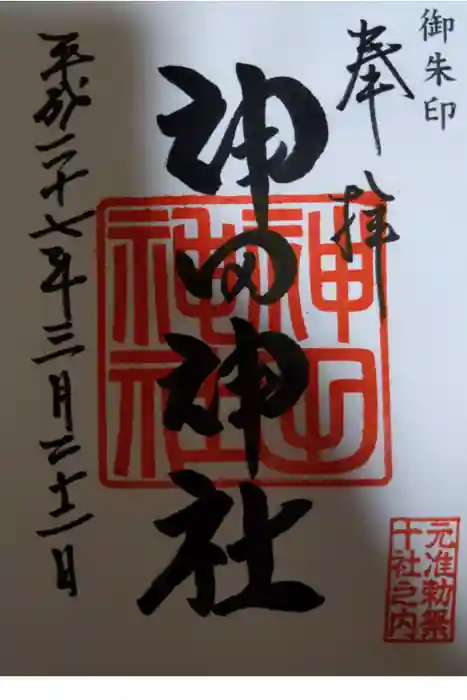 御朱印
奉拝
神田神社
神田神社
平成二十七年三月二十一日
元准勅祭
十社之内